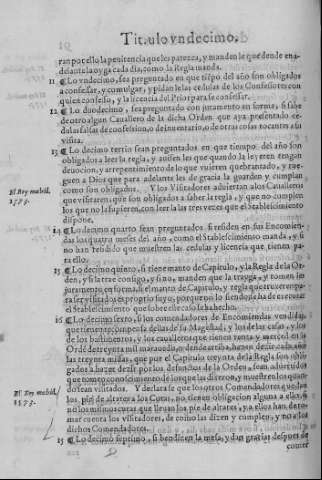 Titulo vndecimo.
ran por ello la penitencia que les parezca, y manden le que dende ena-
delante lo oyga cada dia, como la Regla manda.
11 ¶ Lo vndecimo, sea preguntado en que tiẽpo del año son obligados
a confessar, y comulgar, y pidan les las cedulas de los Confessores con
quien confesso, y la licencia del Prior para se confessar.
12 ¶ Lo duodecimo, sea preguntado con juramento en forma, si sabe
de otro algun Cauallero de la dicha Orden que aya presentado ce-
dulas falsas de confession, o de inuentario, o de otras cosas tocantes a la
visita.
13 ¶ Lo decimo tercio sean preguntados en que tiempo del año son
obligados a leer la regla, y auisen les que quando la leyeren tengan
deuocion, y arrepentimiento de lo que vuieren quebrantado, y rue-
guen a Dios que para adelante les de gracia la guarden y cumplan
El Rey madrid. como son obligados. Y los Visitadores aduiertan a los Caualleros
1573. que visitaren, que son obligados a saber la regla, y que no cumplen
los que no la supieren, con leer la las tres vezes que el Establescimiento
dispone.
14 ¶ Lo decimo quarto sean preguntados si residen en sus Encomien-
das los quatro meses del año, como el establescimiento manda, y si
no han residido que muestren las cedulas y licencia que tienen pa-
ra ello.
15 ¶ Lo decimo quinto, si tiene manto de Capitulo, y la Regla de la Or-
den, y si la trae consigo, y sino, manden que la trayga, y tomen los
juramento en forma, si el manto de Capitulo, y regla que truxeren pa-
ra ser visitados es proprio suyo, porque no lo siendo se ha de executar
el Establescimiento que sobre este caso la ha hecho.
16 ¶ Lo decimo sexto, si los comendadores de Encomiendas vendidas,
que tienen recompensa dellas de su Magestad, y los de las casas, y los
de los bastimentos, y los caualleros que tienen renta y merced en la
Ordẽ de treynta mil marauedis, o dende arriba, hazen dezir cada año
las treynta missas, que por el Capitulo treynta de la Regla son obli-
gados a hazer dezir por los defunctos de la Orden, sean aduertidos
que tomen conoscimiento de los que las dixeren, y muestren lo quan-
do sean visitados. Y declarase que los otros Comendadores que dan
El Rey madrid. los pies de altares a los Curas, no tienen obligacion alguna a ellas, si-
1573. no los mismos curas que lleuan los pie de altares, y a ellos han de to-
mar cuenta los visitadores, de como las dizen y cumplen, y no a los
dichos Comendadores.
¶ Lo decimo septimo, si bendizen la mesa, y dan gracias despues de
comer